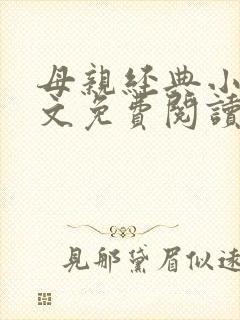 母親經典小
文免費閱讀
見那黛眉似遠